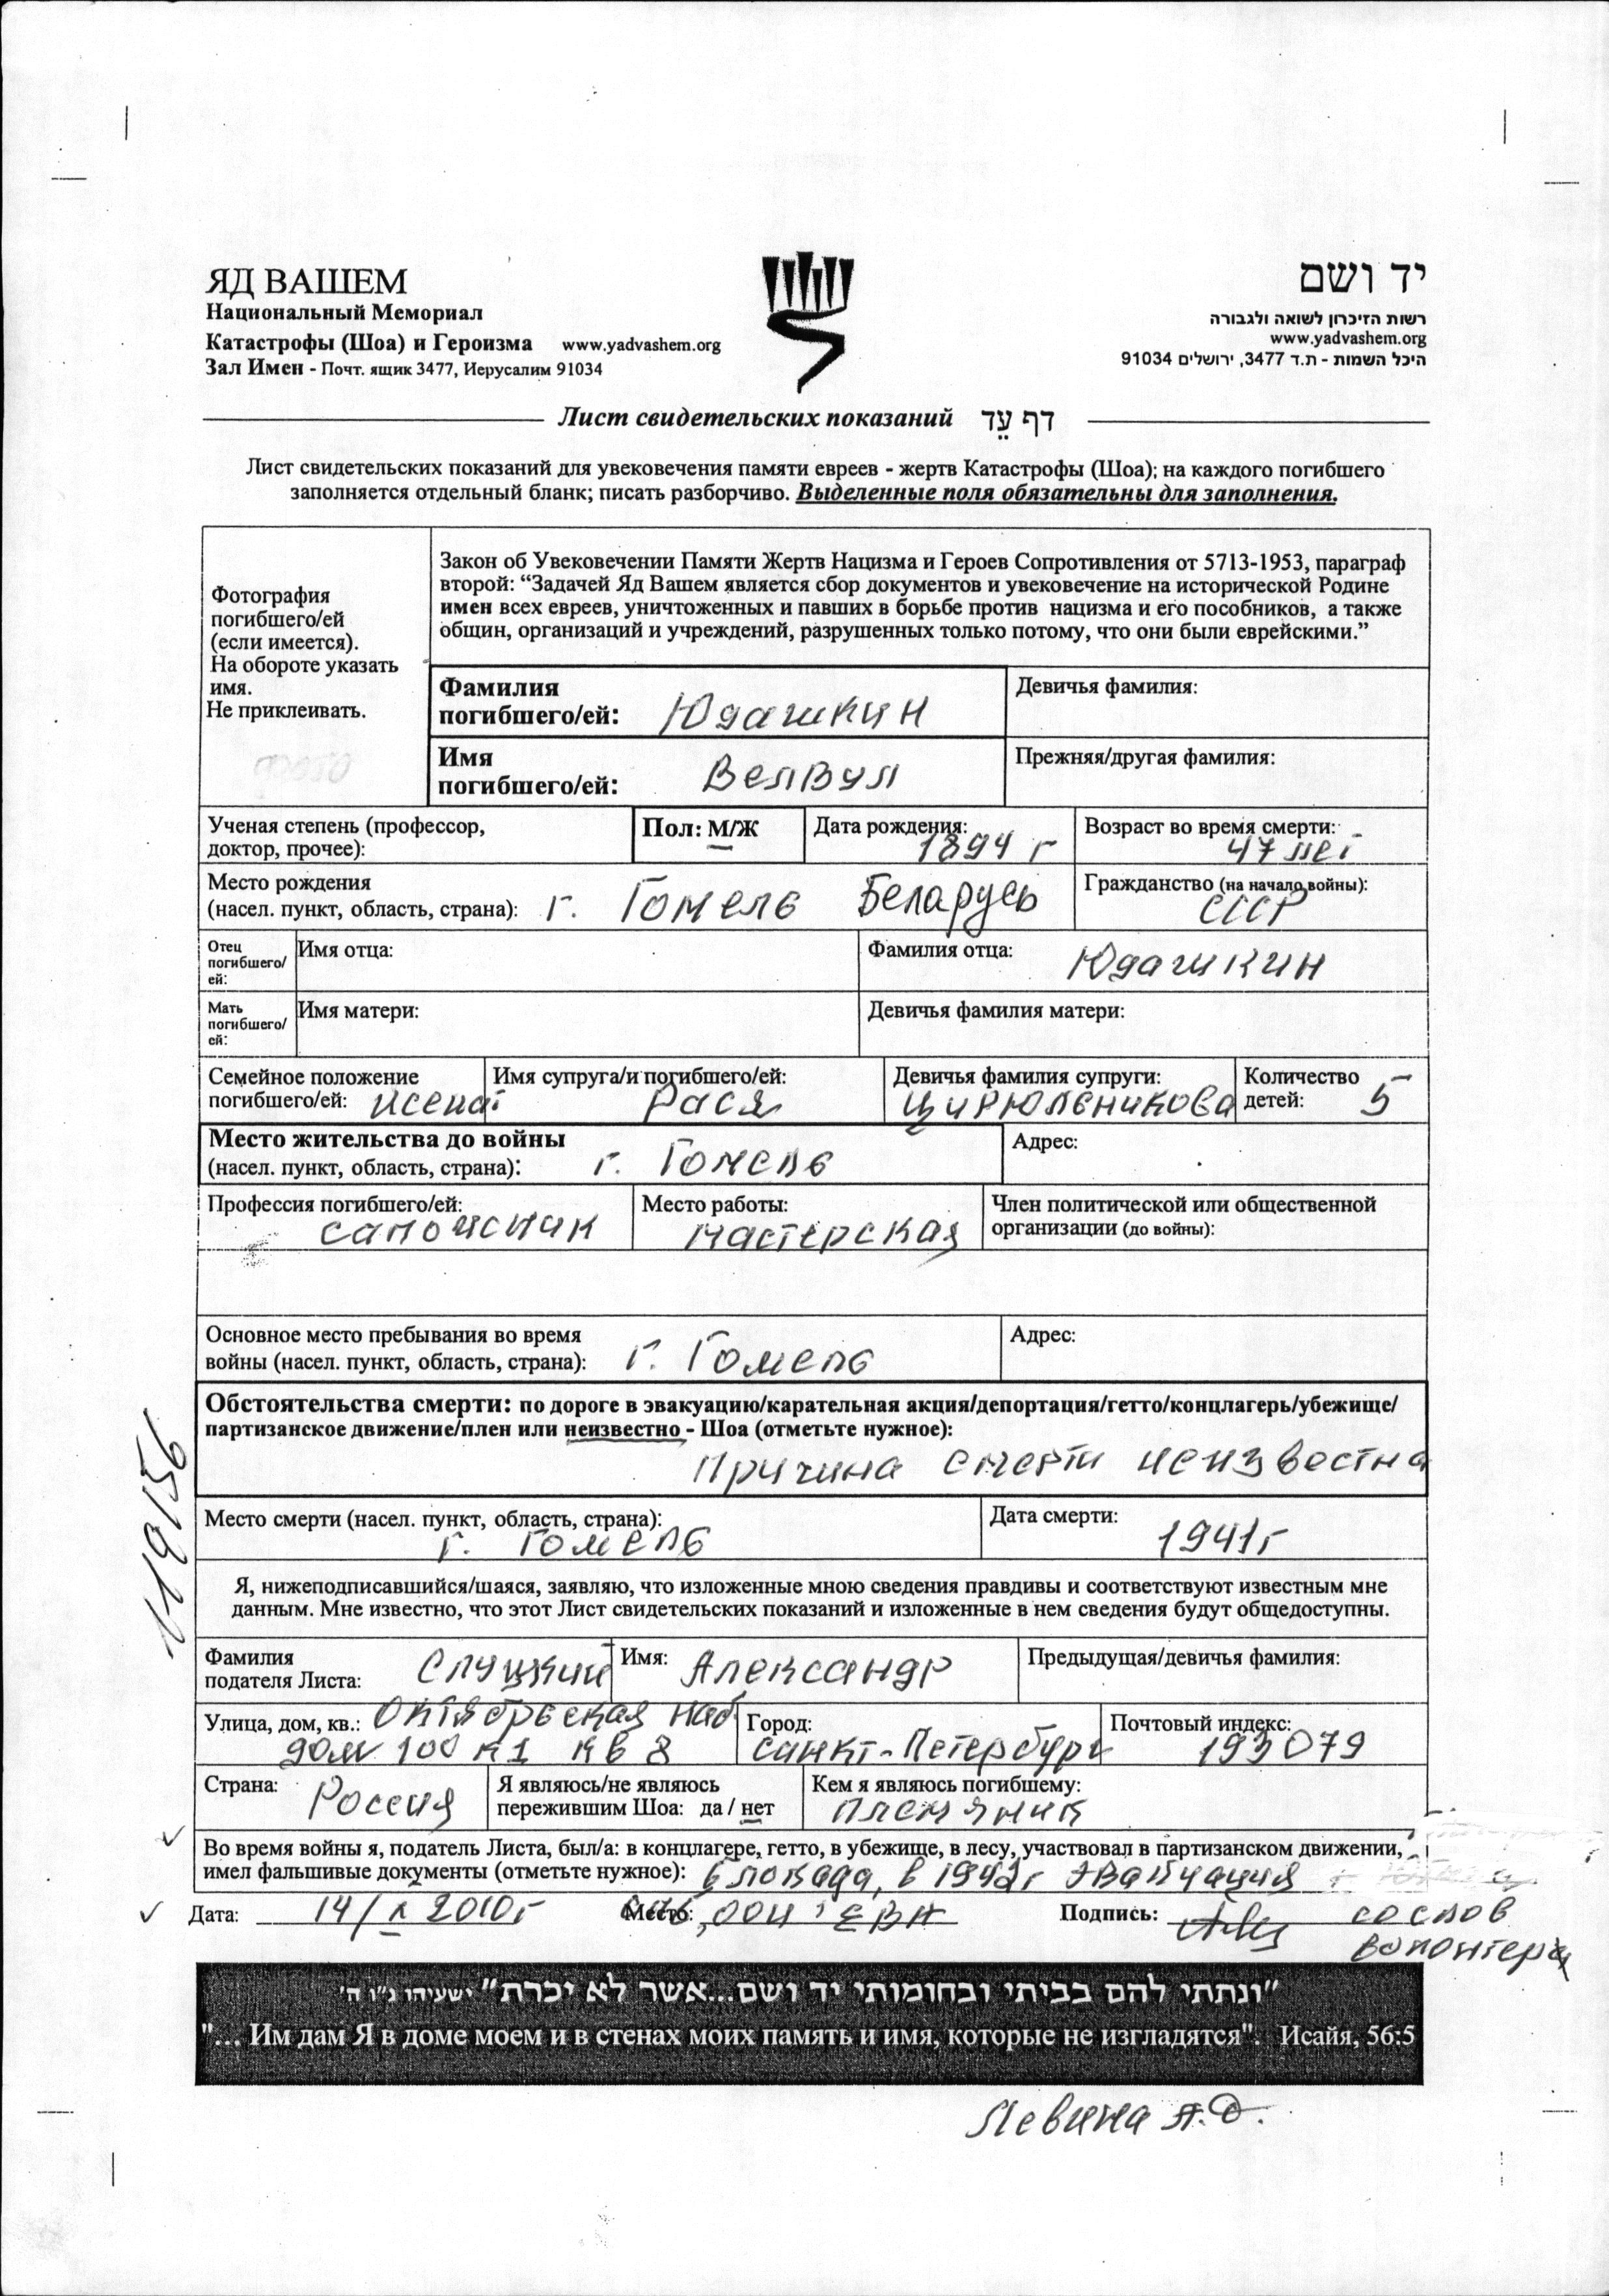 ЯД ВАШЕМ
Национальный Мемориал
Катастрофы (Шоа) и Героизма www.yadvashem.org
Зал Имен - Почт. ящик 3477, Иерусалим 91034
יד ושם
רשות הזיכרון לשואה ולגבורה
www.yadvashem.org
היכל השמות - ת.ד 3477, ירושלים 91034
Лист свидетельских показаний דף עֵד
Лист свидетельских показаний для увековечения памяти евреев - жертв Катастрофы (Шоа); на каждого погибшего
заполняется отдельный бланк; писать разборчиво. Выделенные поля обязательны для заполнения.
Фотография
погибшего/ей
(если имеется).
На обороте указать
имя.
Не приклеивать.
фото
Закон об Увековечении Памяти Жертв Нацизма и Героев Сопротивления от 5713-1953, параграф
второй: “Задачей Яд Вашем является сбор документов и увековечение на исторической Родине
имен всех евреев, уничтоженных и павших в борьбе против нацизма и его пособников, а также
общин, организаций и учреждений, разрушенных только потому, что они были еврейскими.”
Фамилия
погибшего/ей: Юдашкин
Девичья фамилия:
Имя
погибшего/ей: Велвул
Прежняя/другая фамилия:
Ученая степень (профессор,
доктор, прочее):
Пол: М/Ж
Дата рождения:
1894 г
Возраст во время смерти:
47 лет
Место рождения
(насел. пункт, область, страна): г. Гомель Беларусь
Гражданство (на начало войны):
СССР
Отец
погибшего/
ей:
Имя отца:
Фамилия отца: Юдашкин
Мать
погибшего/
ей:
Имя матери:
Девичья фамилия матери:
Семейное положение
погибшего/ей: женат
Имя супруга/и погибшего/ей:
Рася
Девичья фамилия супруги:
Цирюльникова
Количество
детей: 5
Место жительства до войны
(насел. пункт, область, страна): г. Гомель
Адрес:
Профессия погибшего/ей:
сапожник
Место работы:
мастерская
Член политической или общественной
организации (до войны):
Основное место пребывания во время
войны (насел. пункт, область, страна): г. Гомель
Адрес:
Обстоятельства смерти: по дороге в эвакуацию/карательная акция/депортация/гетто/концлагерь/убежище/
партизанское движение/плен или неизвестно - Шоа (отметьте нужное):
Причина смерти неизвестна
Место смерти (насел. пункт, область, страна):
г. Гомель
Дата смерти:
1941г
Я, нижеподписавшийся/шаяся, заявляю, что изложенные мною сведения правдивы и соответствуют известным мне
данным. Мне известно, что этот Лист свидетельских показаний и изложенные в нем сведения будут общедоступны.
Фамилия
подателя Листа: Слуцкий
Имя: Александр
Предыдущая/девичья фамилия:
Улица, дом, кв.: Октябрьская наб
дом 100 к1 кв 8
Город:
Санкт-Петербург
Почтовый индекс:
193079
Страна: Россия
Я являюсь/не являюсь
пережившим Шоа: да / нет
Кем я являюсь погибшему:
племянник
Во время войны я, податель Листа, был/а: в концлагере, гетто, в убежище, в лесу, участвовал в партизанском движении,
имел фальшивые документы (отметьте нужное): блокада, в 1942г эвакуация
Дата: 14/X 2010г
Место: ЕВА
Подпись: со слов
волонтера
119156
"ונתתי להם בביתי ובחומותי יד ושם...אשר לא יכרת" ישעיהו נ"ו ה'
"... Им дам Я в доме моем и в стенах моих память и имя, которые не изгладятся". Исайя, 56:5
Левина Л.Д.